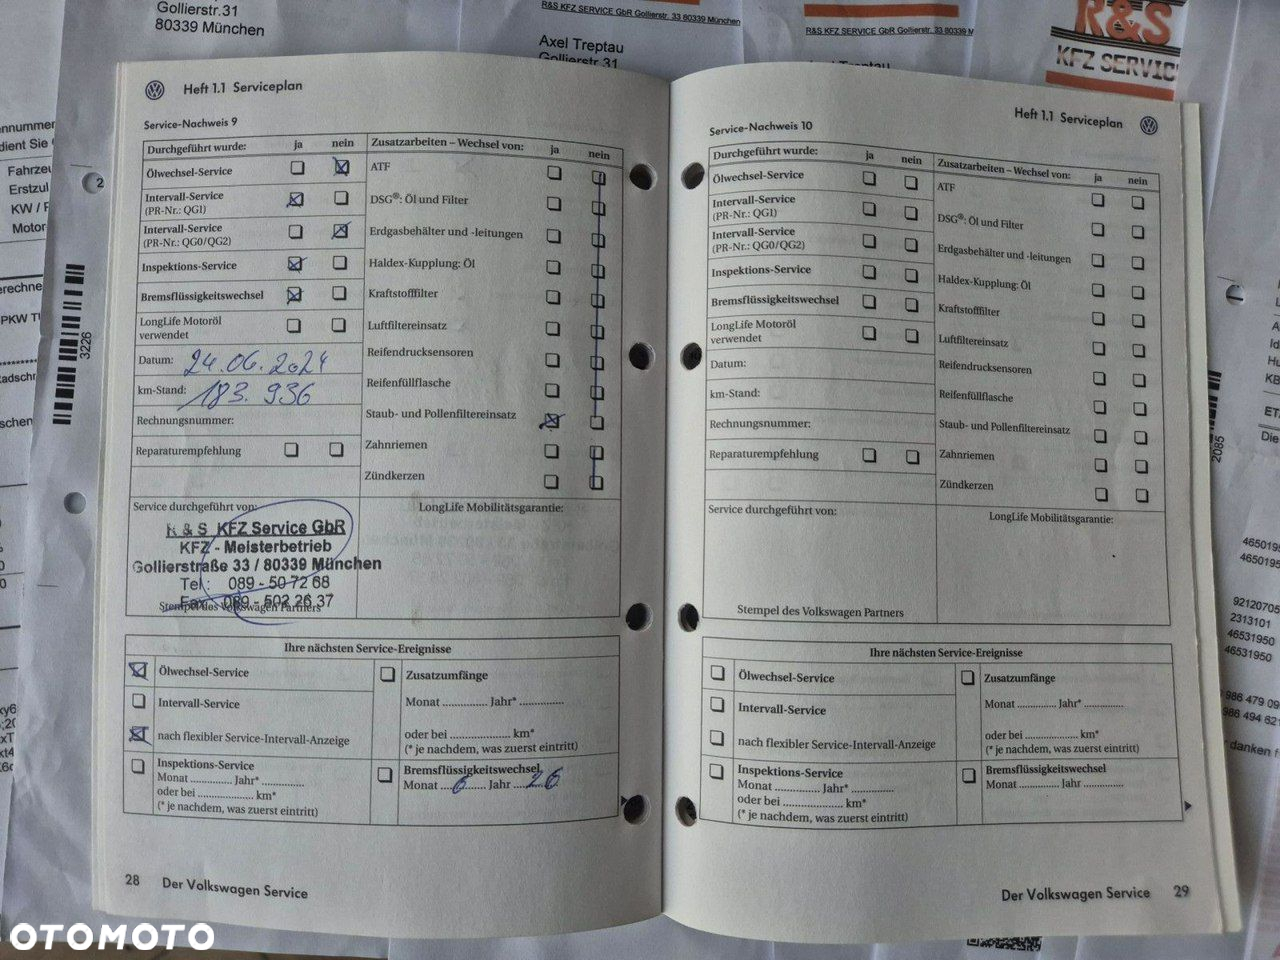 Gollierstr.31
80339 München
R&S KFZ SERVICE GbR Gollierstr. 33 80339 München
Axel Treptau
Gollierstr 31
R&S KFZ SERVICE GbR Gollierstr. 33 80339 M
R&S
KFZ SERVIC
Heft 1.1 Serviceplan
Service-Nachweis 9
Durchgeführt wurde: ja nein
Ölwechsel-Service
Intervall-Service
(PR-Nr.: QG1)
Intervall-Service
(PR-Nr.: QG0/QG2)
Inspektions-Service
Bremsflüssigkeitswechsel
LongLife Motoröl
verwendet
Datum: 24.06.2024
km-Stand: 183.936
Rechnungsnummer:
Reparaturempfehlung
Zusatzarbeiten – Wechsel von: ja nein
ATF
DSG®: Öl und Filter
Erdgasbehälter und -leitungen
Haldex-Kupplung: Öl
Kraftstofffilter
Luftfiltereinsatz
Reifendrucksensoren
Reifenfüllflasche
Staub- und Pollenfiltereinsatz
Zahnriemen
Zündkerzen
Service durchgeführt von:
R & S KFZ Service GbR
KFZ - Meisterbetrieb
Gollierstraße 33 / 80339 München
Tel.: 089 - 50 72 68
Fax: 089 - 502 26 37
Stempel des Volkswagen Partners
LongLife Mobilitätsgarantie:
Ihre nächsten Service-Ereignisse
Ölwechsel-Service
Intervall-Service
nach flexibler Service-Intervall-Anzeige
Inspektions-Service
Monat .............. Jahr* ..............
oder bei .................... km*
(* je nachdem, was zuerst eintritt)
Zusatzumfänge
Monat .............. Jahr* ..............
oder bei .................... km*
(* je nachdem, was zuerst eintritt)
Bremsflüssigkeitswechsel
Monat 6 Jahr 26
28 Der Volkswagen Service
Heft 1.1 Serviceplan
Service-Nachweis 10
Durchgeführt wurde: ja nein
Ölwechsel-Service
Intervall-Service
(PR-Nr.: QG1)
Intervall-Service
(PR-Nr.: QG0/QG2)
Inspektions-Service
Bremsflüssigkeitswechsel
LongLife Motoröl
verwendet
Datum:
km-Stand:
Rechnungsnummer:
Reparaturempfehlung
Zusatzarbeiten – Wechsel von: ja nein
ATF
DSG®: Öl und Filter
Erdgasbehälter und -leitungen
Haldex-Kupplung: Öl
Kraftstofffilter
Luftfiltereinsatz
Reifendrucksensoren
Reifenfüllflasche
Staub- und Pollenfiltereinsatz
Zahnriemen
Zündkerzen
Service durchgeführt von:
Stempel des Volkswagen Partners
LongLife Mobilitätsgarantie:
Ihre nächsten Service-Ereignisse
Ölwechsel-Service
Intervall-Service
nach flexibler Service-Intervall-Anzeige
Inspektions-Service
Monat .............. Jahr* ..............
oder bei .................... km*
(* je nachdem, was zuerst eintritt)
Zusatzumfänge
Monat .............. Jahr* ..............
oder bei .................... km*
(* je nachdem, was zuerst eintritt)
Bremsflüssigkeitswechsel
Monat .............. Jahr ..............
Der Volkswagen Service 29
3226
2085
46531950
92120705
2313101
46531950
46531950
OTOMOTO